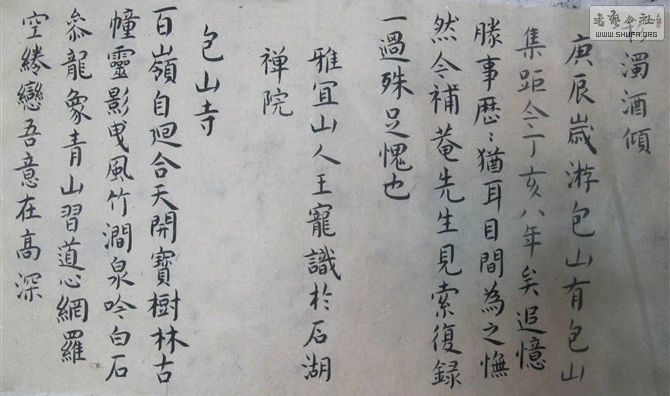 濁酒傾
庚辰歲游包山有包山
集距今丁亥八年矣追憶
勝事歷〻猶耳目間為之憮
然今補菴先生見索復録
一過殊足愧也
雅宜山人王寵識於石湖
禅院
包山寺
百嶺自廻合天開寶樹林古
幢靈影曳風竹澗泉吟白石
叅龍象青山習道心網羅
空綣戀吾意在高深
書藝公社
WWW.SHUFA.ORG